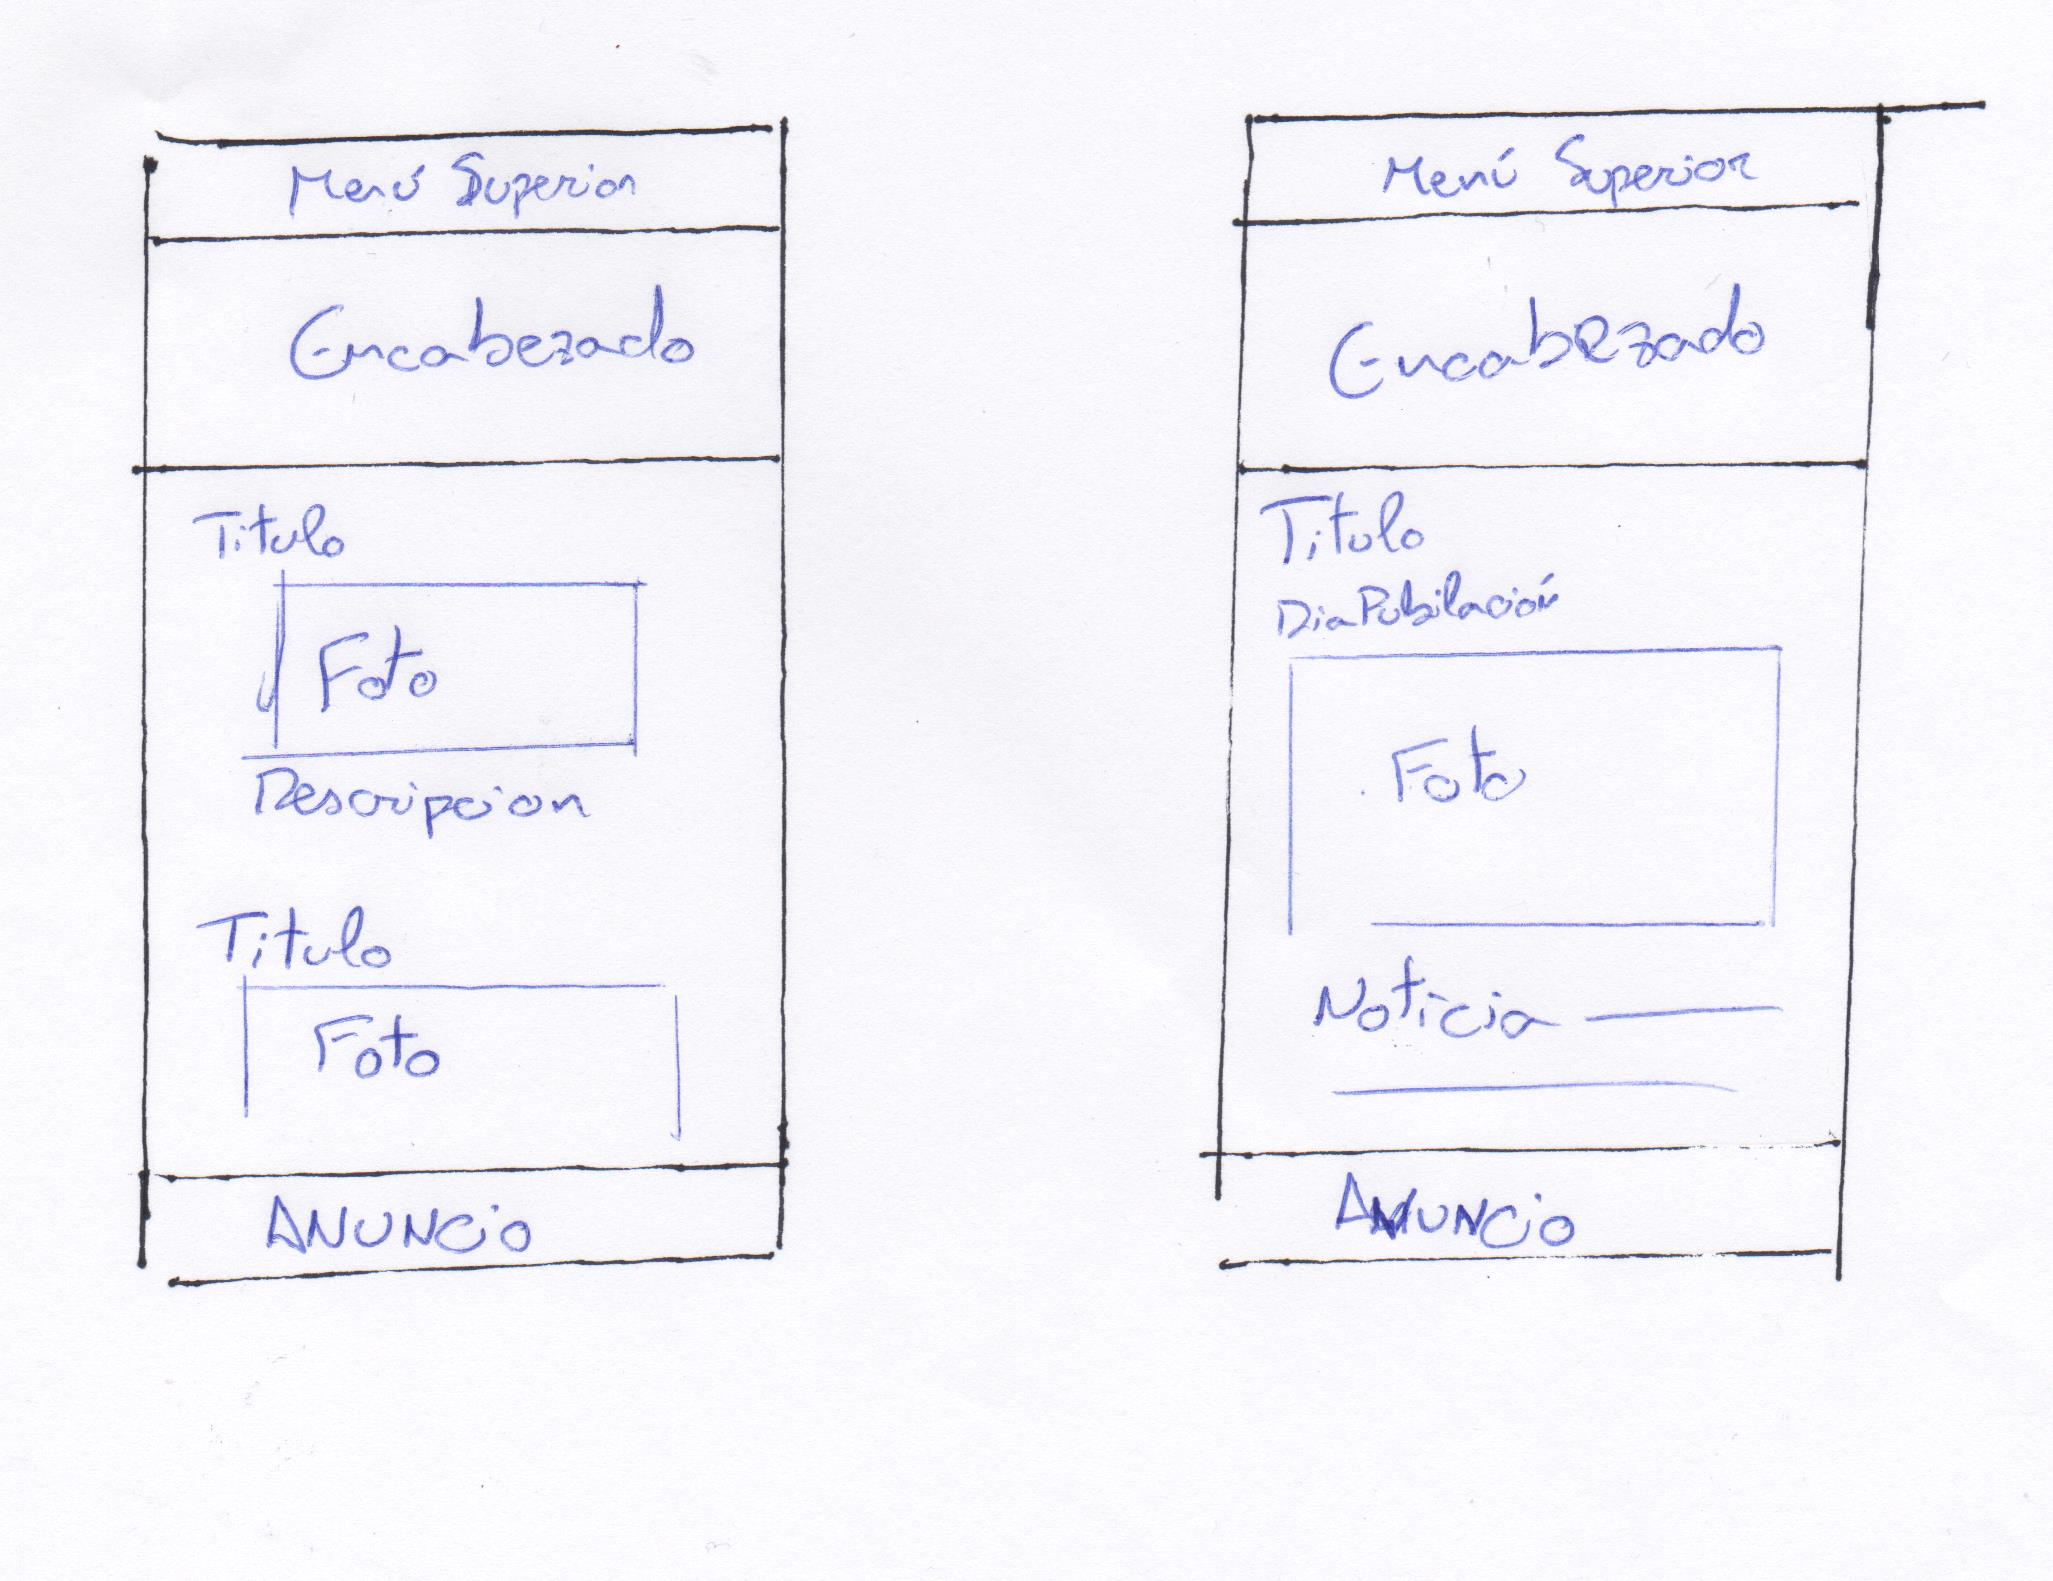 Menú Superior
Encabezado
Titulo
Foto
Descripcion
Titulo
Foto
ANUNCIO
Menú Superior
Encabezado
Titulo
Dia Publilación
Foto
Noticia
ANUNCIO